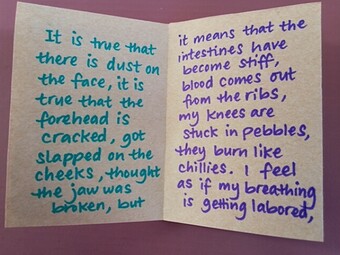 It is true that
there is dust on
the face, it is
true that the
forehead is
cracked, got
slapped on the
cheeks, thought
the jaw was
broken, but
it means that the
intestines have
become stiff,
blood comes out
from the ribs,
my knees are
stuck in pebbles,
they burn like
chillies. I feel
as if my breathing
is getting labored,